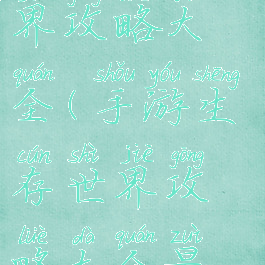 界攻略大
quán shǒu yóu shēng
全(手游生
cún shì jiè gōng
存世界攻
lüè dà quán zuì
略大全最